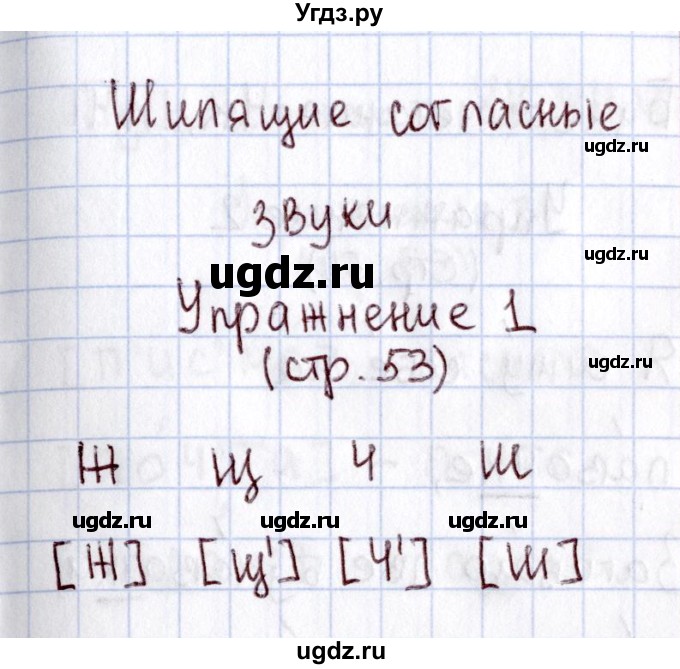 Угдз.ру
Шипящие согласные
ugdz.ru
звуки
ugdz.ru
ugdz.ru
Упражнение 1
(стр. 53)
ugdz.ru
Ж Щ Ч Ш
ugdz.ru ugdz.ru ugdz.ru
[Ж] [Щ'] [Ч'] [Ш]
ugdz.ru